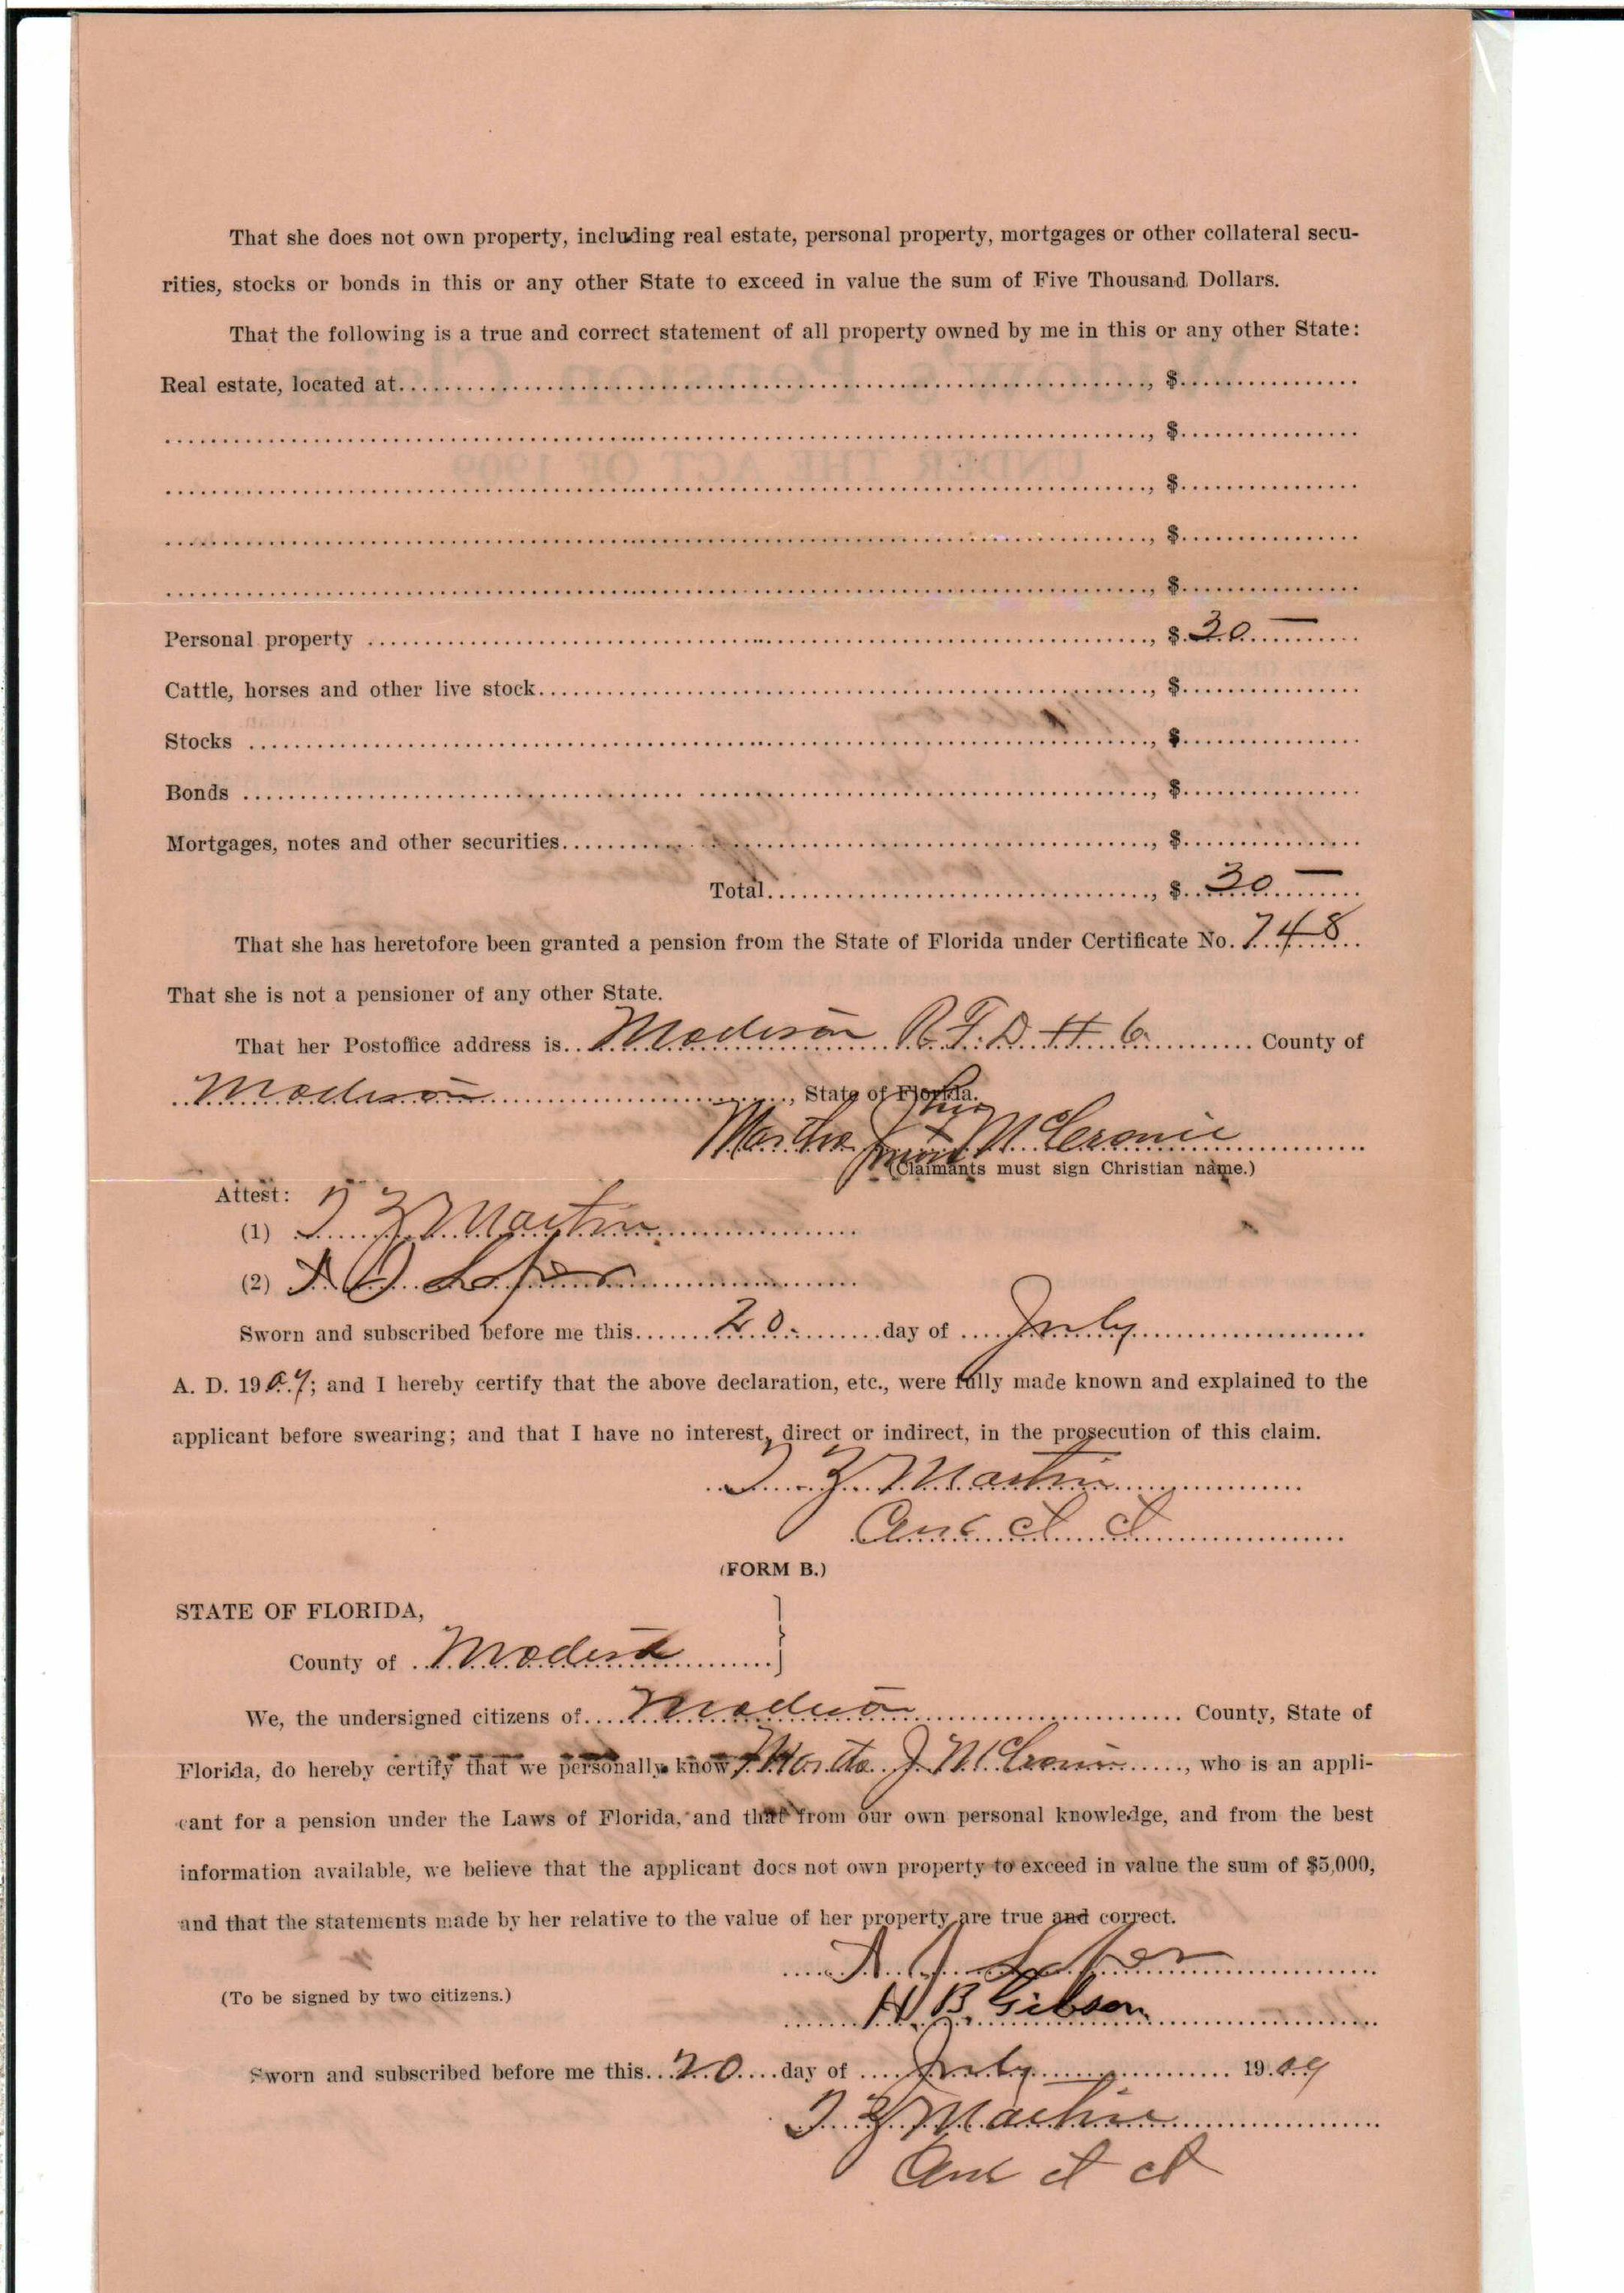 That she does not own property, including real estate, personal property, mortgages or other collateral secu-
rities, stocks or bonds in this or any other State to exceed in value the sum of Five Thousand Dollars.
That the following is a true and correct statement of all property owned by me in this or any other State:
Real estate, located at ........, $........
........, $........
........, $........
........, $........
........, $........
Personal property ........, $ 30 —
Cattle, horses and other live stock........, $........
Stocks ........, $........
Bonds ........, $........
Mortgages, notes and other securities........, $........
Total........, $ 30 —
That she has heretofore been granted a pension from the State of Florida under Certificate No. 748
That she is not a pensioner of any other State.
That her Postoffice address is Madison R.F.D. # 6 County of
Madison, State of Florida.
her
Martha J X McCronie
mark
(Claimants must sign Christian name.)
Attest:
(1) T Z Martin
(2)
Sworn and subscribed before me this 20 day of July
A. D. 1909; and I hereby certify that the above declaration, etc., were fully made known and explained to the
applicant before swearing; and that I have no interest, direct or indirect, in the prosecution of this claim.
T Z Martin
(FORM B.)
STATE OF FLORIDA,
County of Madison
We, the undersigned citizens of Madison County, State of
Florida, do hereby certify that we personally know Martha J McCronie, who is an appli-
cant for a pension under the Laws of Florida, and that from our own personal knowledge, and from the best
information available, we believe that the applicant does not own property to exceed in value the sum of $5,000,
and that the statements made by her relative to the value of her property are true and correct.
(To be signed by two citizens.)
H. B. Gibson
Sworn and subscribed before me this 20 day of July 1909
T Z Martin